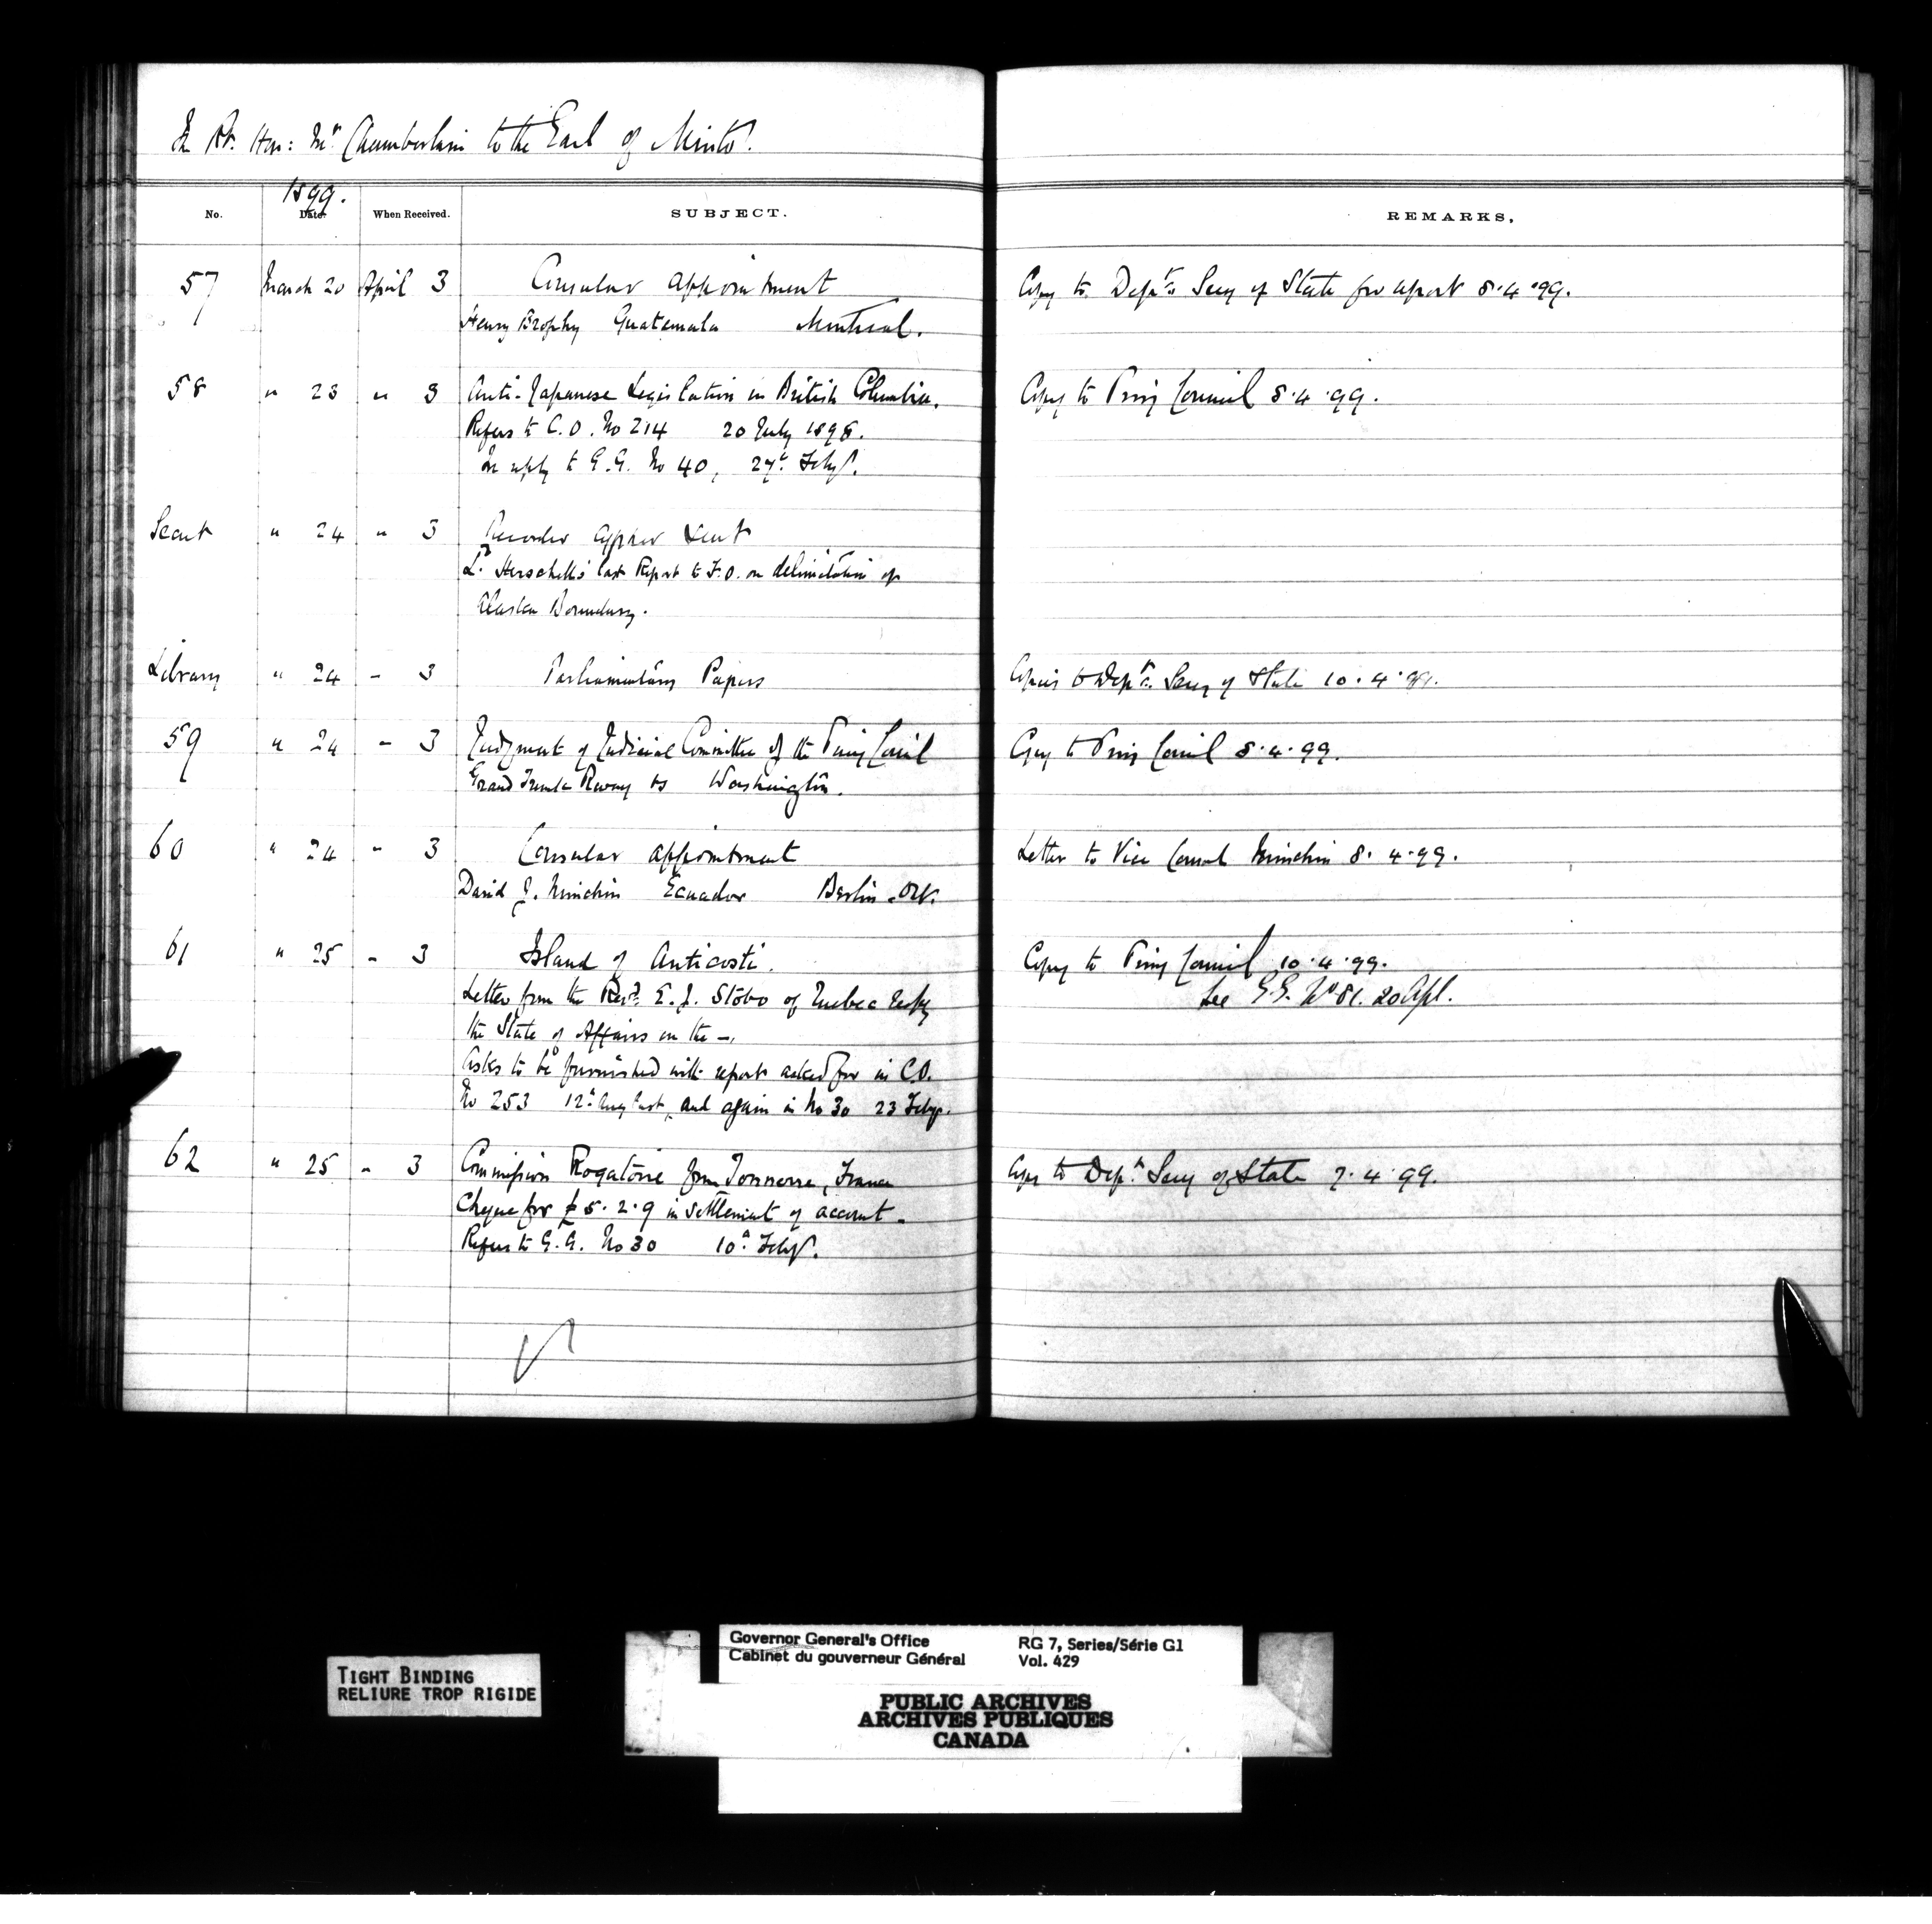 The Rt. Hon: Mr Chamberlain to the Earl of Minto.
1899.
No. Date When Received. SUBJECT. REMARKS.
57 March 20 April 3 Consular appointment Copy to Deptn Secy of State for report 8.4.99.
Henry Brophy Guatemala Montreal.
58 " 23 " 3 Anti-Japanese Legislation in British Columbia. Copy to Privy Council 8.4.99.
Refers to C.O. No 214 20 July 1898.
In reply to G.G. No 40, 27th Feby.
Secret " 24 " 3 Recorder cypher sent
Ld Herschell's last Report to F.O. on delimitation of
Alaska Boundary.
Library " 24 " 3 Parliamentary Papers Copies to Dept Secy of State 10.4.99.
59 " 24 " 3 Judgment of Judicial Committee of the Privy Council Copy to Privy Council 8.4.99.
Grand Trunk Rway vs Washington.
60 " 24 " 3 Consular appointment Letter to Vice Consul Minchin 8.4.99.
David J. Minchin Ecuador Berlin. Ont.
61 " 25 " 3 Island of Anticosti. Copy to Privy Council 10.4.99.
Letter from the Revd. E. J. Stobo of Quebec respg See G.G. No 81. 20 Apl.
the State of Affairs on the —,
Asks to be furnished with report asked for in C.O.
No 253 12th Aug last, and again in No 30 23 Feby.
62 " 25 " 3 Commission Rogatoire from Tonnerre, France Copy to Dept Secy of State 7.4.99.
Cheque for £5.2.9 in settlement of account.
Refers to G.G. No 30 10th Feby.
TIGHT BINDING
RELIURE TROP RIGIDE
Governor General's Office RG 7, Series/Série G1
Cabinet du gouverneur Général Vol. 429
PUBLIC ARCHIVES
ARCHIVES PUBLIQUES
CANADA